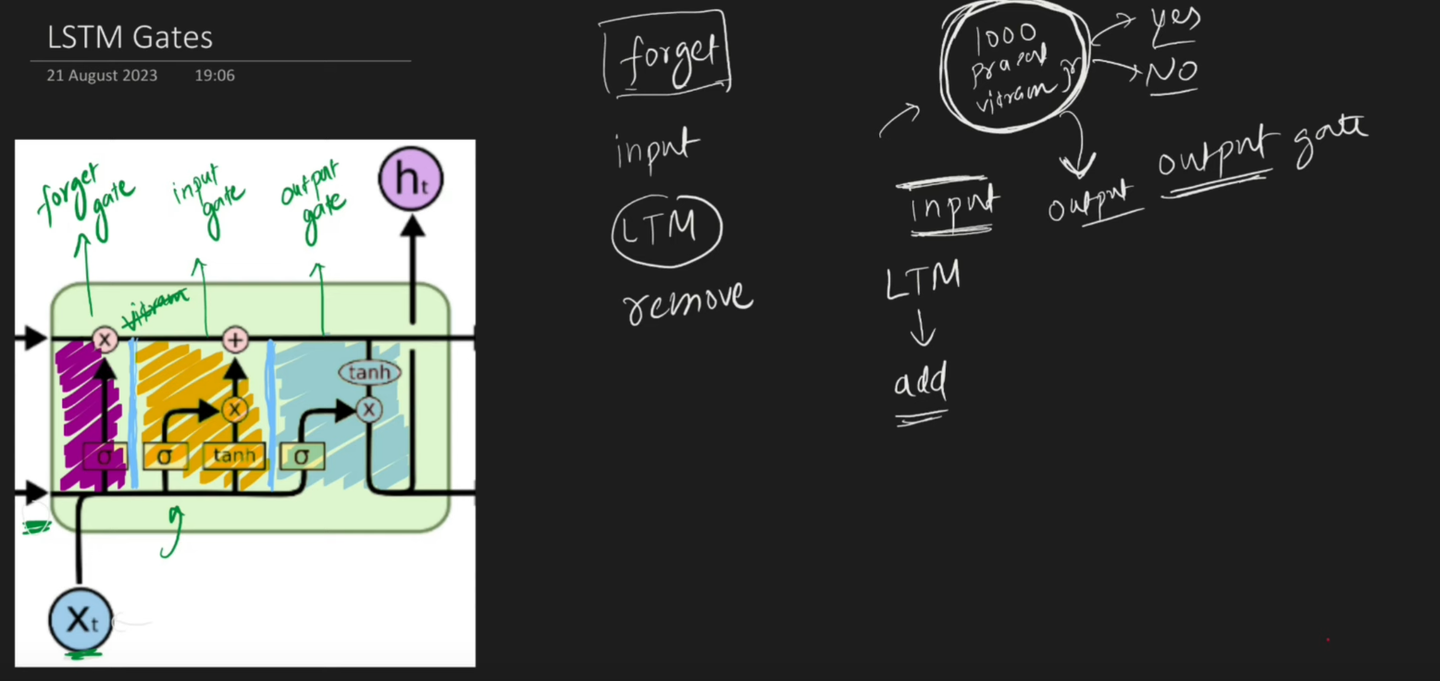 LSTM Gates
21 August 2023 19:06
forget gate
input gate
output gate
ht
vikram
x
+
tanh
x
x
σ
σ
tanh
σ
g
Xt
forget
input
LTM
remove
1000
vikram jr
yes
NO
input
output
output gate
LTM
add